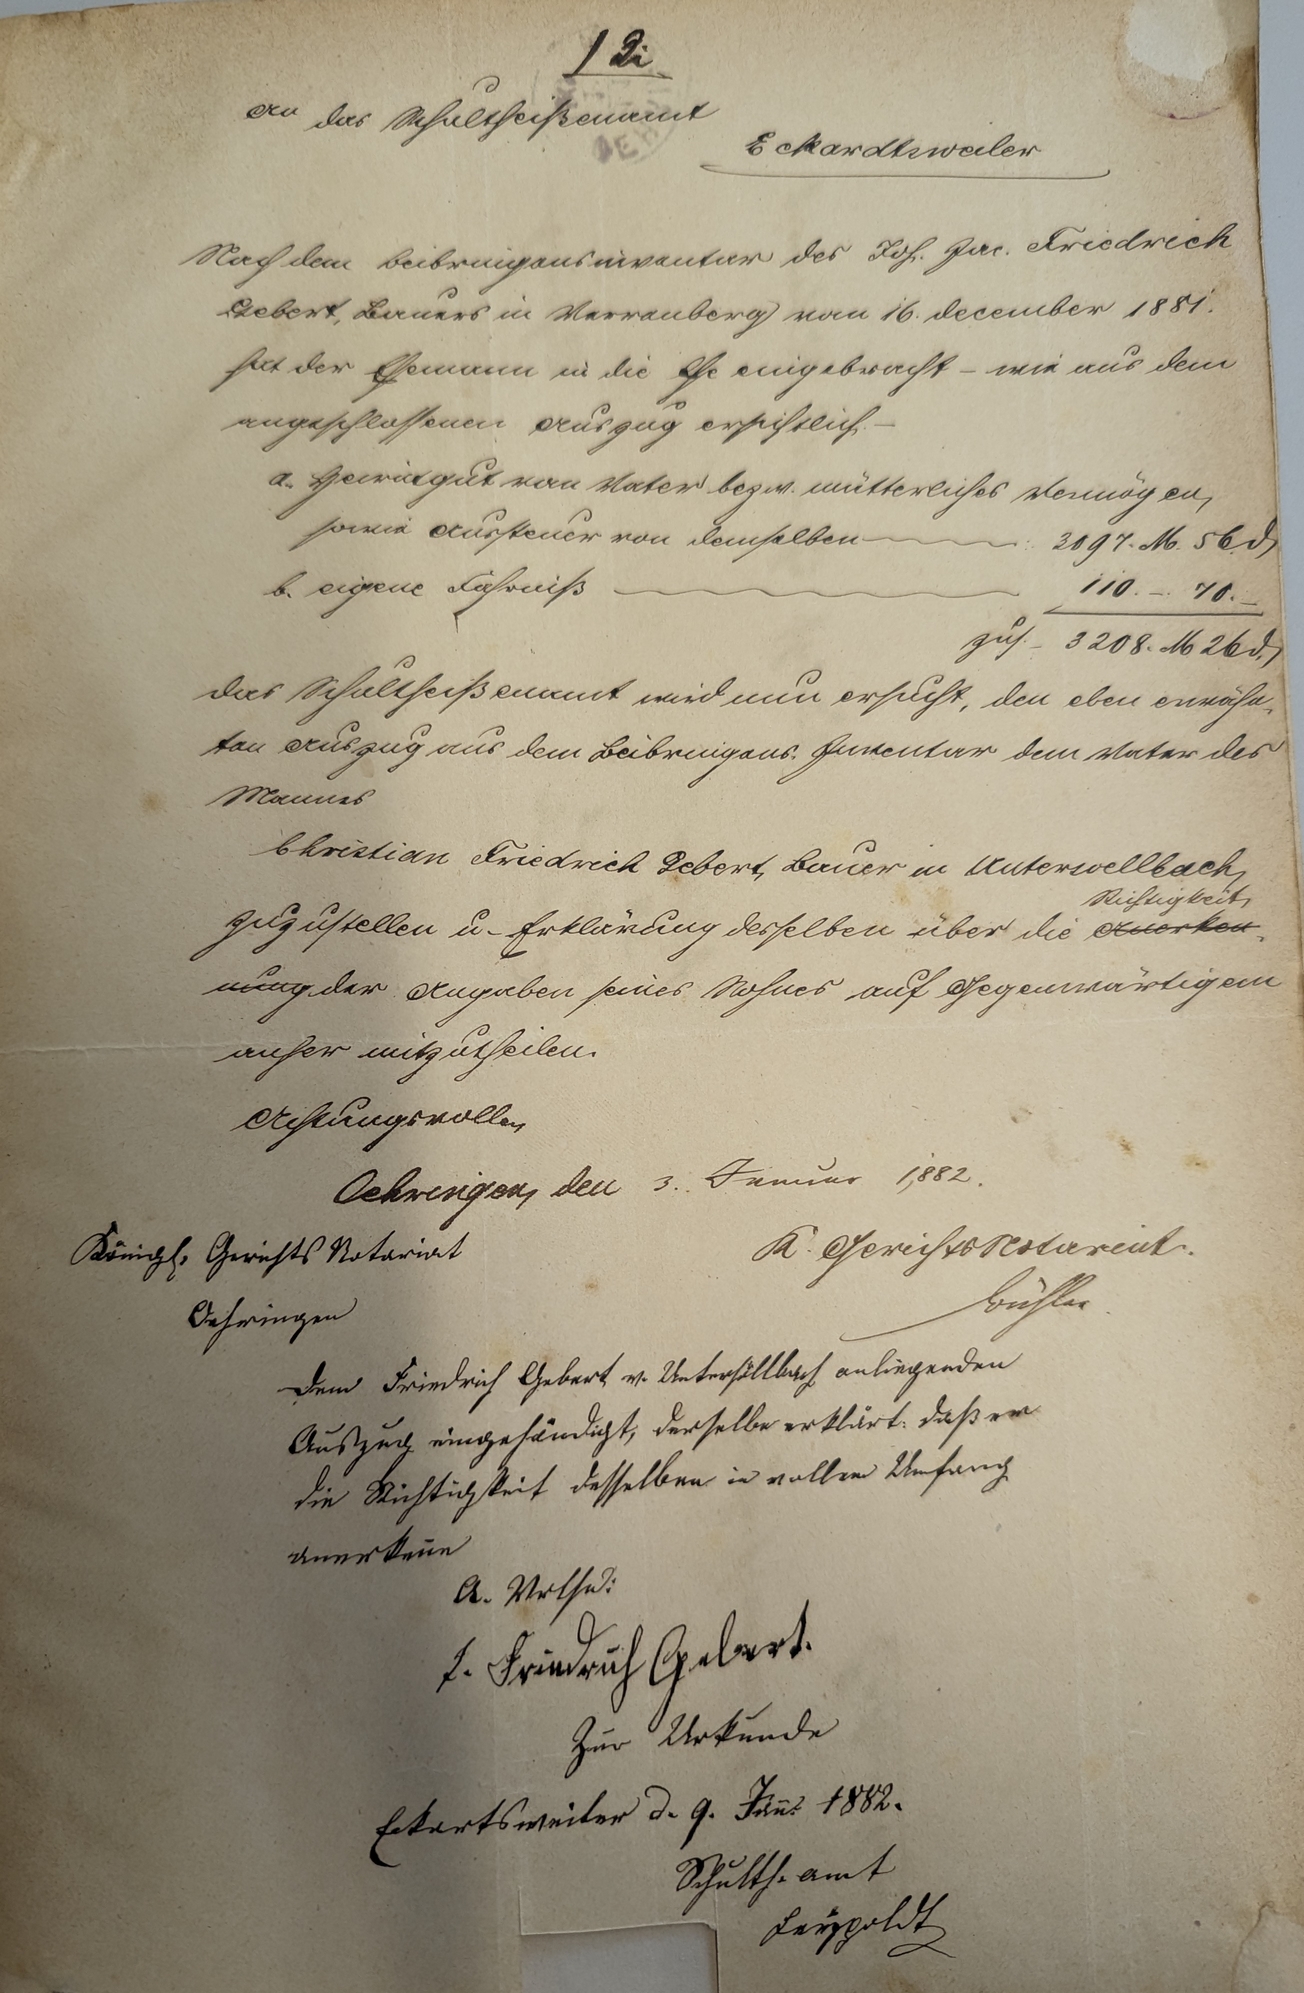 12i
An das Schultheißenamt
Eckardtsweiler
Nach dem Beibringensinventar des Joh. Jac. Friedrich
Gebert, Bauers in Verrenberg vom 16. December 1881.
hat der Ehemann in die Ehe eingebracht – wie aus dem
angeschlossenen Auszug ersichtlich –
a. Heiratgut vom Vater bezw. mütterliches Vermögen,
sowie Aussteuer von demselben 3097. M. 56 d,
b. eigene Fahrniß 110. – 70. –
zus. – 3208. M 26 d,
Das Schultheißenamt wird nun ersucht, den eben erwähn-
ten Auszug aus dem Beibringens-Inventar dem Vater des
Mannes
Christian Friedrich Gebert, Bauer in Untersöllbach,
Richtigkeit
zuzustellen u. Erklärung desselben über die Anerken-
nung der Angaben seines Sohnes auf Gegenwärtigem
anher mitzutheilen.
Achtungsvollen
Oehringen, den 3. Januar 1882.
K. GerichtsNotariat.
Bühler
Königl. Gerichts Notariat
Oehringen
Dem Friedrich Gebert v. Untersöllbach anliegenden
Auszug eingehändigt, derselbe erklärt: daß er
die Richtigkeit desselben in vollem Umfang
anerkeñe
t. Friedrich Gebert.
Zur Urkunde
Eckartsweiler d. 9. Jañr 1882.
Schulth. amt
Leypoldt